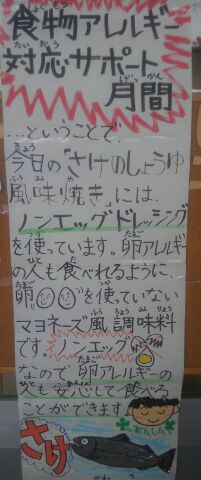 食物アレルギー
対応サポート
月間
…ということで、
今日の「さけのしょうゆ
風味焼き」には、
ノンエッグドレッシング
を使っています。卵アレルギー
の人も食べれるように、
卵を使っていない
マヨネーズ風調味料
です。ノンエッグ
なので卵アレルギーの
ひとも安心して食べる
ことができます。
あんしん
さけ